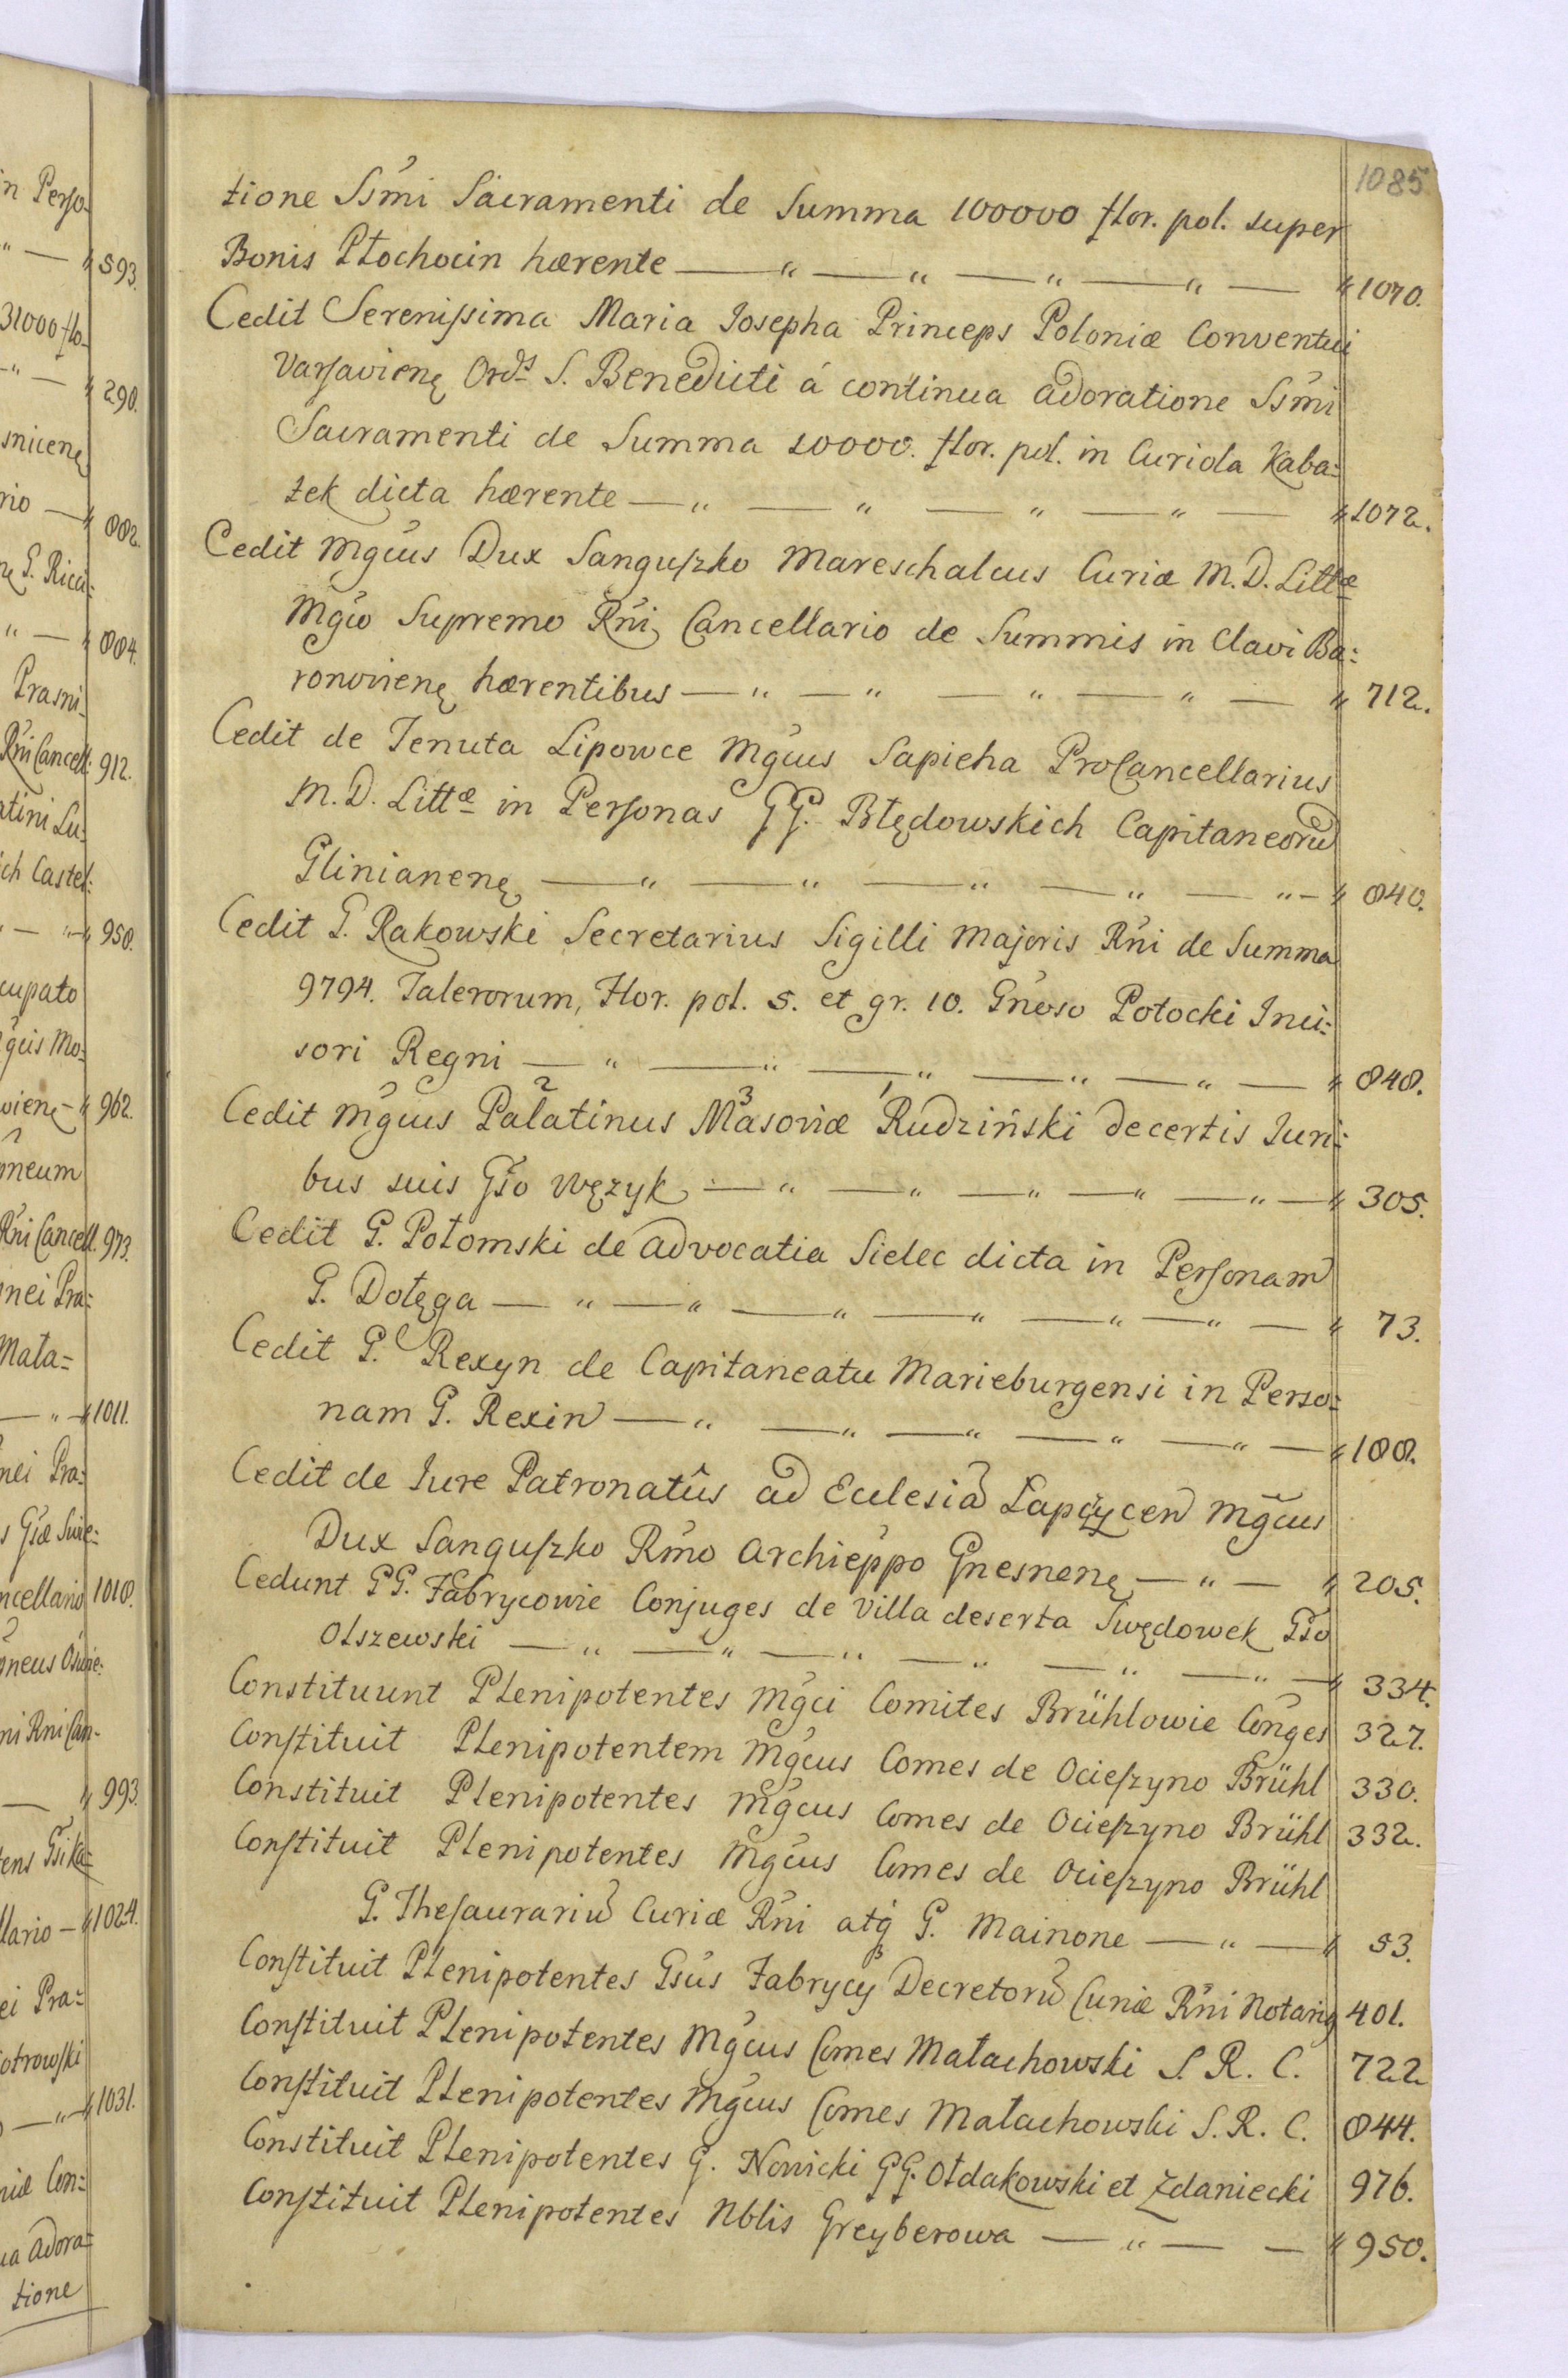 in Perso-
" — " 593.
31000 flo-
" — " 290.
snicenę
rio — " 882.
nę G. Ricci:
" — " 884.
Prasni-
Rńi Cancell: 912.
atini Lu:
ich Castel:
" — " 958.
cupato
Mgcis Mo:
wienę — " 962.
neum
Rńi Cancell. 973.
nei Pra:
Mała=
— " — 1011.
nei Pra:
s Gsæ Swie:
ncellario 1018.
neus Oswie:
ni Rni Can-
— " 993.
tens Gsi Ka=
llario — " 1024.
ei Pra=
iotrowski
o — " — 1031.
niæ Con:
ua adora=
tione
1085
tione Sśmi Sacramenti de Summa 100000 flor. pol. super
Bonis Płochocin hærente — " — " — " — " — " 1070.
Cedit Serenissima Maria Josepha Princeps Poloniæ Conventui
Varsavienę Ord̃s S. Benedicti á continua adoratione Sśmi
Sacramenti de Summa 10000. flor. pol. in Curiola Kaba:
tek dicta hærente — " — " — " — " — " 1072.
Cedit Mgcus Dux Sanguszko Mareschalcus Curiæ M. D. Littæ
Mgco Supremo Rńi Cancellario de Summis in Clavi Ba:
ronovienę hærentibus — " — " — " — " — " 712.
Cedit de Tenuta Lipowce Mgcus Sapieha ProCancellarius
M. D. Littæ in Personas GG. Błędowskich Capitaneorũ
Glinianenę — " — " — " — " — " — " 840.
Cedit G. Rakowski Secretarius Sigilli Majoris Rńi de Summa
9794. Talerorum, Flor. pol. 5. et gr. 10. Gnoso Potocki Inci:
sori Regni — " — " — " — " — " — " 848.
Cedit Mgcus 2 Palatinus 3 Masoviæ 1 Rudziński de certis Juri:
bus suis Gso Wężyk — " — " — " — " — " — " 305.
Cedit G. Połomski de Advocatia Sielec dicta in Personam
G. Dołęga — " — " — " — " — " — " — " 73.
Cedit G. Rexyn de Capitaneatu Marieburgensi in Perso:
nam G. Rexin — " — " — " — " — " — " 188.
Cedit de Jure Patronatûs ad Ecclesiã Łapczycen Mgcus
Dux Sanguszko Rmo Archieppo Gnesnenę — " — " 205.
Cedunt GG. Fabrycowie Conjuges de Villa deserta Swędowek Gso
Olszewski — " — " — " — " — " — " — " 334.
Constituunt Plenipotentes Mgci Comites Brühlowie Conges 327.
Constituit Plenipotentem Mgcus Comes de Ocieszyno Brühl 330.
Constituit Plenipotentes Mgcus Comes de Ocieszyno Brühl 332.
Constituit Plenipotentes Mgcus Comes de Ocieszyno Brühl
G. Thesaurariũ Curiæ Rńi atq́ G. Mainone — " — " 53.
Constituit Plenipotentes Gsus Fabrycy Decretorũ Curiæ Rńi Notari9 401.
Constituit Plenipotentes Mgcus Comes Małachowski S. R. C. 722
Constituit Plenipotentes Mgcus Comes Małachowski S. R. C. 844.
Constituit Plenipotentes G. Nowicki GG. Ołdakowski et Zdaniecki 976.
Constituit Plenipotentes Nblis Greyberowa — " — — " 950.